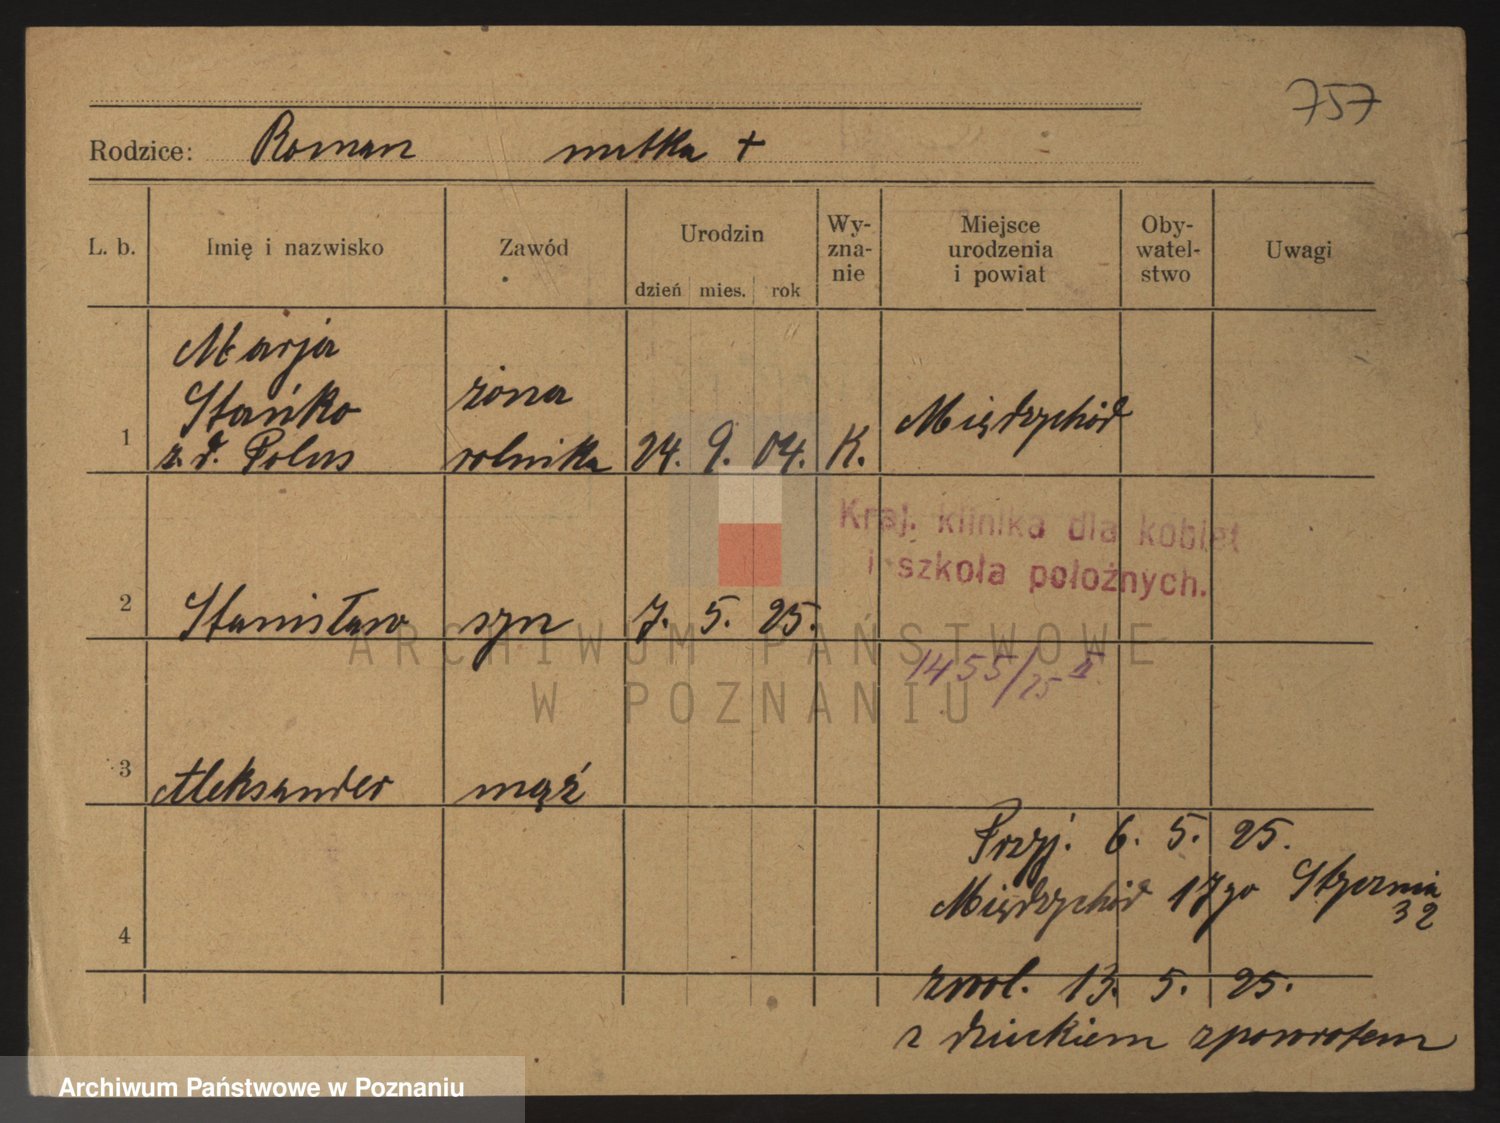 757
Rodzice: Roman matka +
L. b. Imię i nazwisko Zawód Urodzin dzień mies. rok Wy-zna-nie Miejsce urodzenia i powiat Oby-watel-stwo Uwagi
Marja
Stańko żona
1 z. d. Polus rolnika 24. 9. 04. K. Międzychód
Kraj. klinika dla kobiet
i szkoła położnych.
2 Stanisław syn 7. 5. 25.
ARCHIWUM PAŃSTWOWE
W POZNANIU
1455/25 II
3 Aleksander mąż
Przyj. 6. 5. 25.
Międzychód 17go Stycznia
32
4
zwol. 13. 5. 25.
z dzieckiem zpowrotem
Archiwum Państwowe w Poznaniu